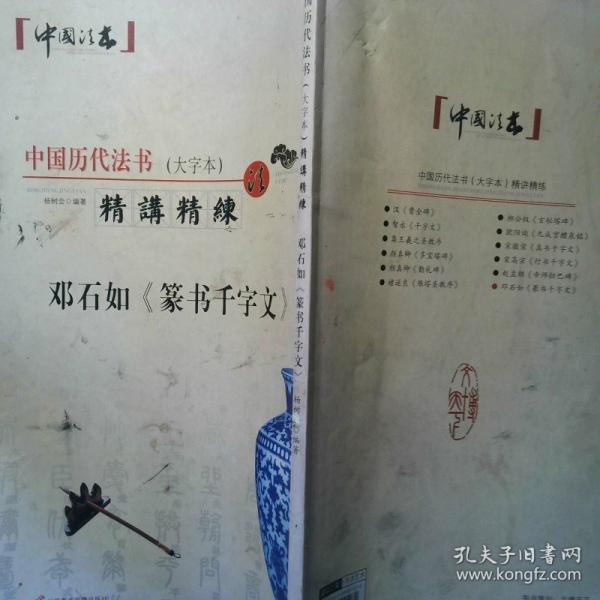 中国法书
中国历代法书（大字本）
法
杨树云 编著
精講精練
邓石如《篆书千字文》
中国历代法书（大字本）精講精練 邓石如《篆书千字文》
中国法书
中国历代法书（大字本）精讲精练
●汉《曹全碑》
●智永《千字文》
●集王羲之圣教序
●颜真卿《多宝塔碑》
●颜真卿《勤礼碑》
●褚遂良《雁塔圣教序》
●柳公权《玄秘塔碑》
●欧阳询《九成宫醴泉铭》
●宋徽宗《真书千字文》
●宋高宗《行书千字文》
●赵孟頫《帝师胆巴碑》
●邓石如《篆书千字文》
孔夫子旧书网
www.kongfz.com